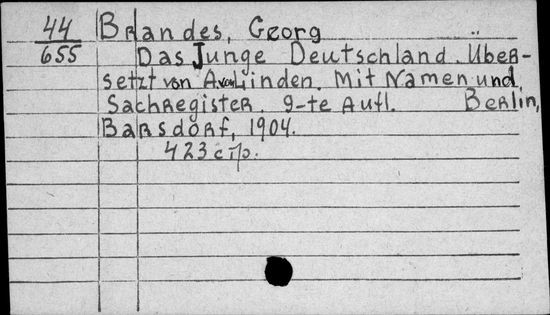 44 Brandes, Georg
655 Das Junge Deutschland. Über-
setzt von A. von Linden. Mit Namen und
Sachregister. 9-te Aufl. Berlin,
Barsdorf, 1904.
423 стр.